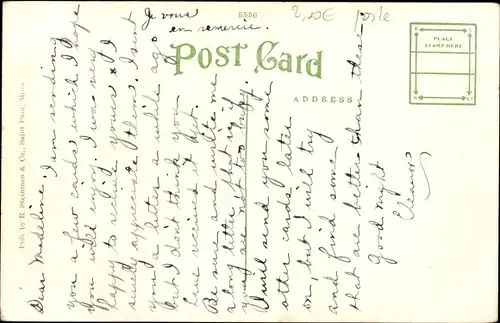 Je vous
en remercie.
5556
2,10€ Poste
POST CARD
ADDRESS
PLACE
STAMP HERE
Pub. by R. Steinman & Co., Saint Paul, Minn.
Dear Madeline, I am sending
you a few cards which I hope
you will enjoy. I was very
happy to receive yours & I
surely appreciate them. I sent
you a letter a while ago
but I don't think you
have received it yet.
Be sure and write me
a long letter, that is, if
you are not too busy.
I will send you some
other cards later
on, but I will try
and find some
that are better than these
Good night
Eleanor